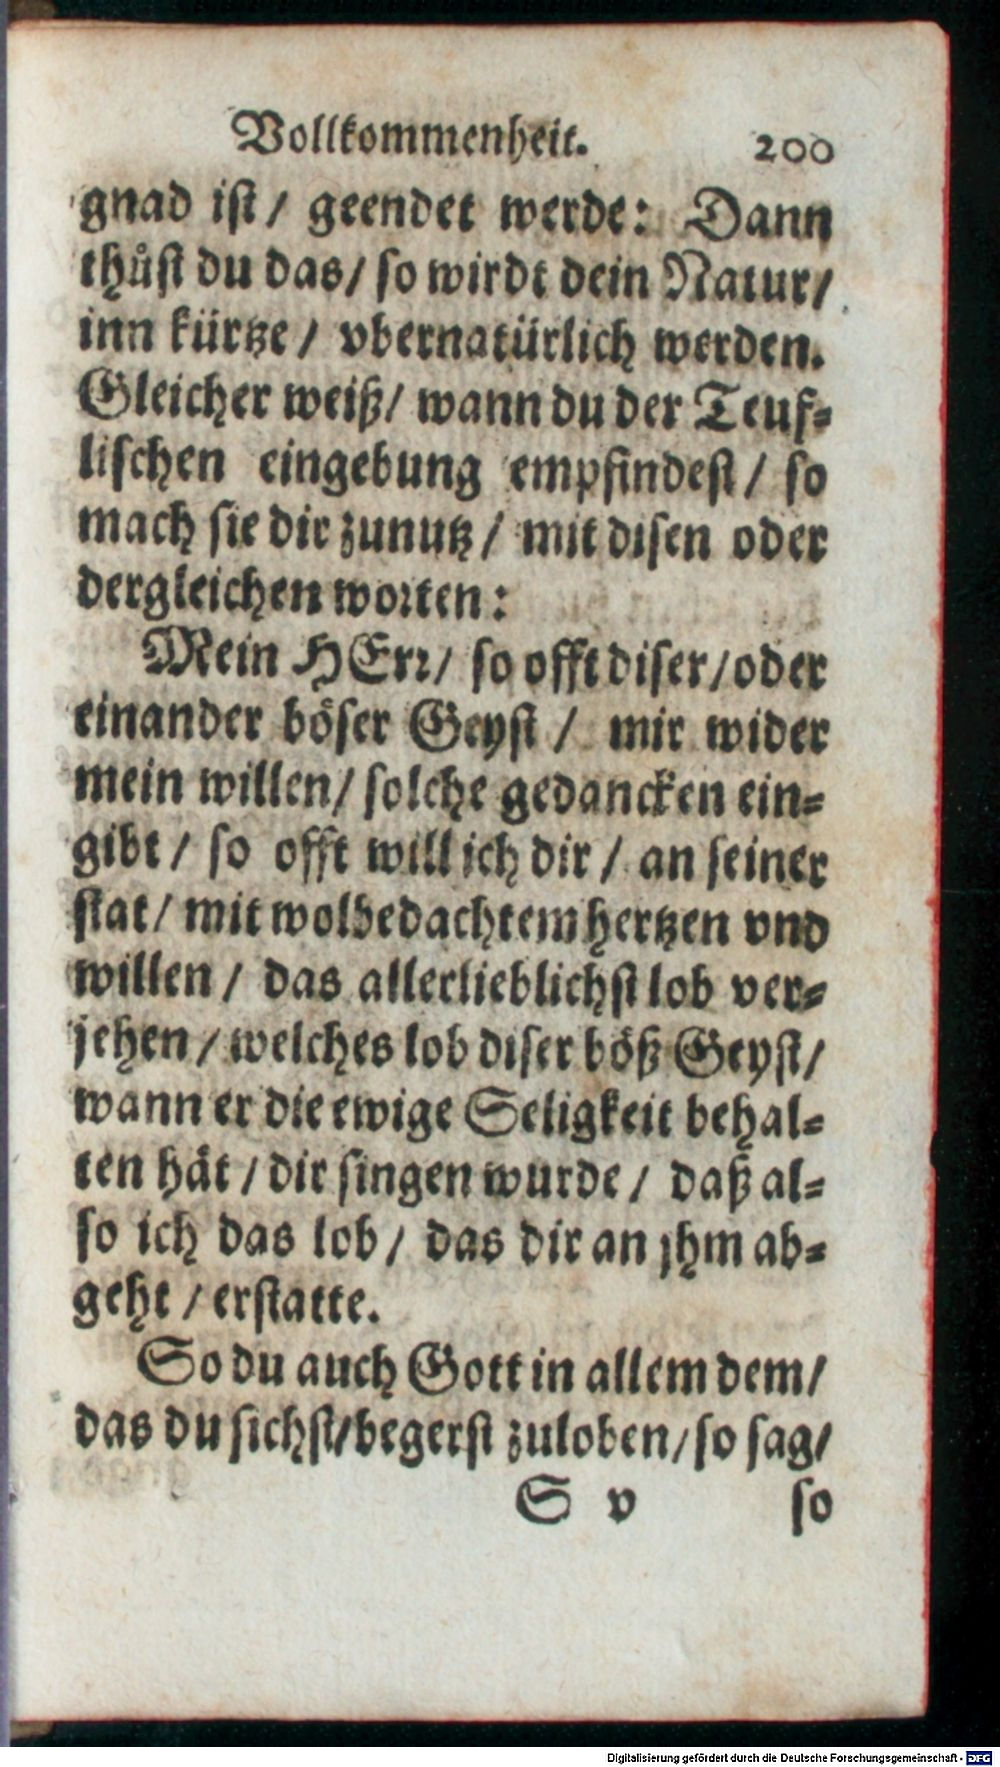 Vollkommenheit. 200
gnad ist / geendet werde: Dann
thůst du das / so wirdt dein Natur /
inn kürtze / vbernatürlich werden.
Gleicher weiß / wann du der Teuf-
lischen eingebung empfindest / so
mach sie dir zunutz / mit disen oder
dergleichen worten:
Mein HErr / so offt diser / oder
einander böser Geyst / mir wider
mein willen / solche gedancken ein-
gibt / so offt will ich dir / an seiner
stat / mit wolbedachtem hertzen vnd
willen / das allerlieblichst lob ver-
jehen / welches lob diser böß Geyst /
wann er die ewige Seligkeit behal-
ten hät / dir singen wurde / daß al-
so ich das lob / das dir an jhm ab-
geht / erstatte.
So du auch Gott in allem dem /
das du sichst / begerst zuloben / so sag /
S v so
Digitalisierung gefördert durch die Deutsche Forschungsgemeinschaft - DFG